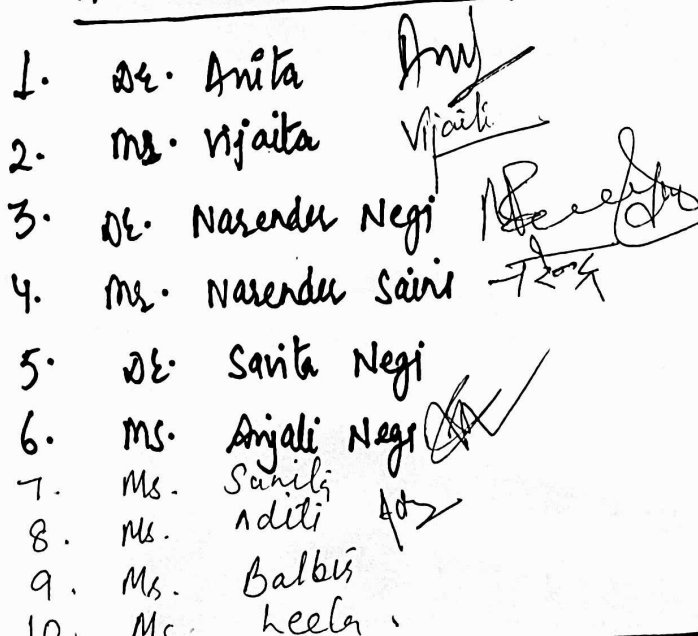 1. Dr. Anita
2. Ms. Vijaita Vijaiti
3. Dr. Narender Negi
4. Mr. Narender Saini
5. Dr. Savita Negi
6. Ms. Anjali Negi
7. Ms. Sunita
8. Ms. Aditi
9. Ms. Balbir
10. Ms. Leela